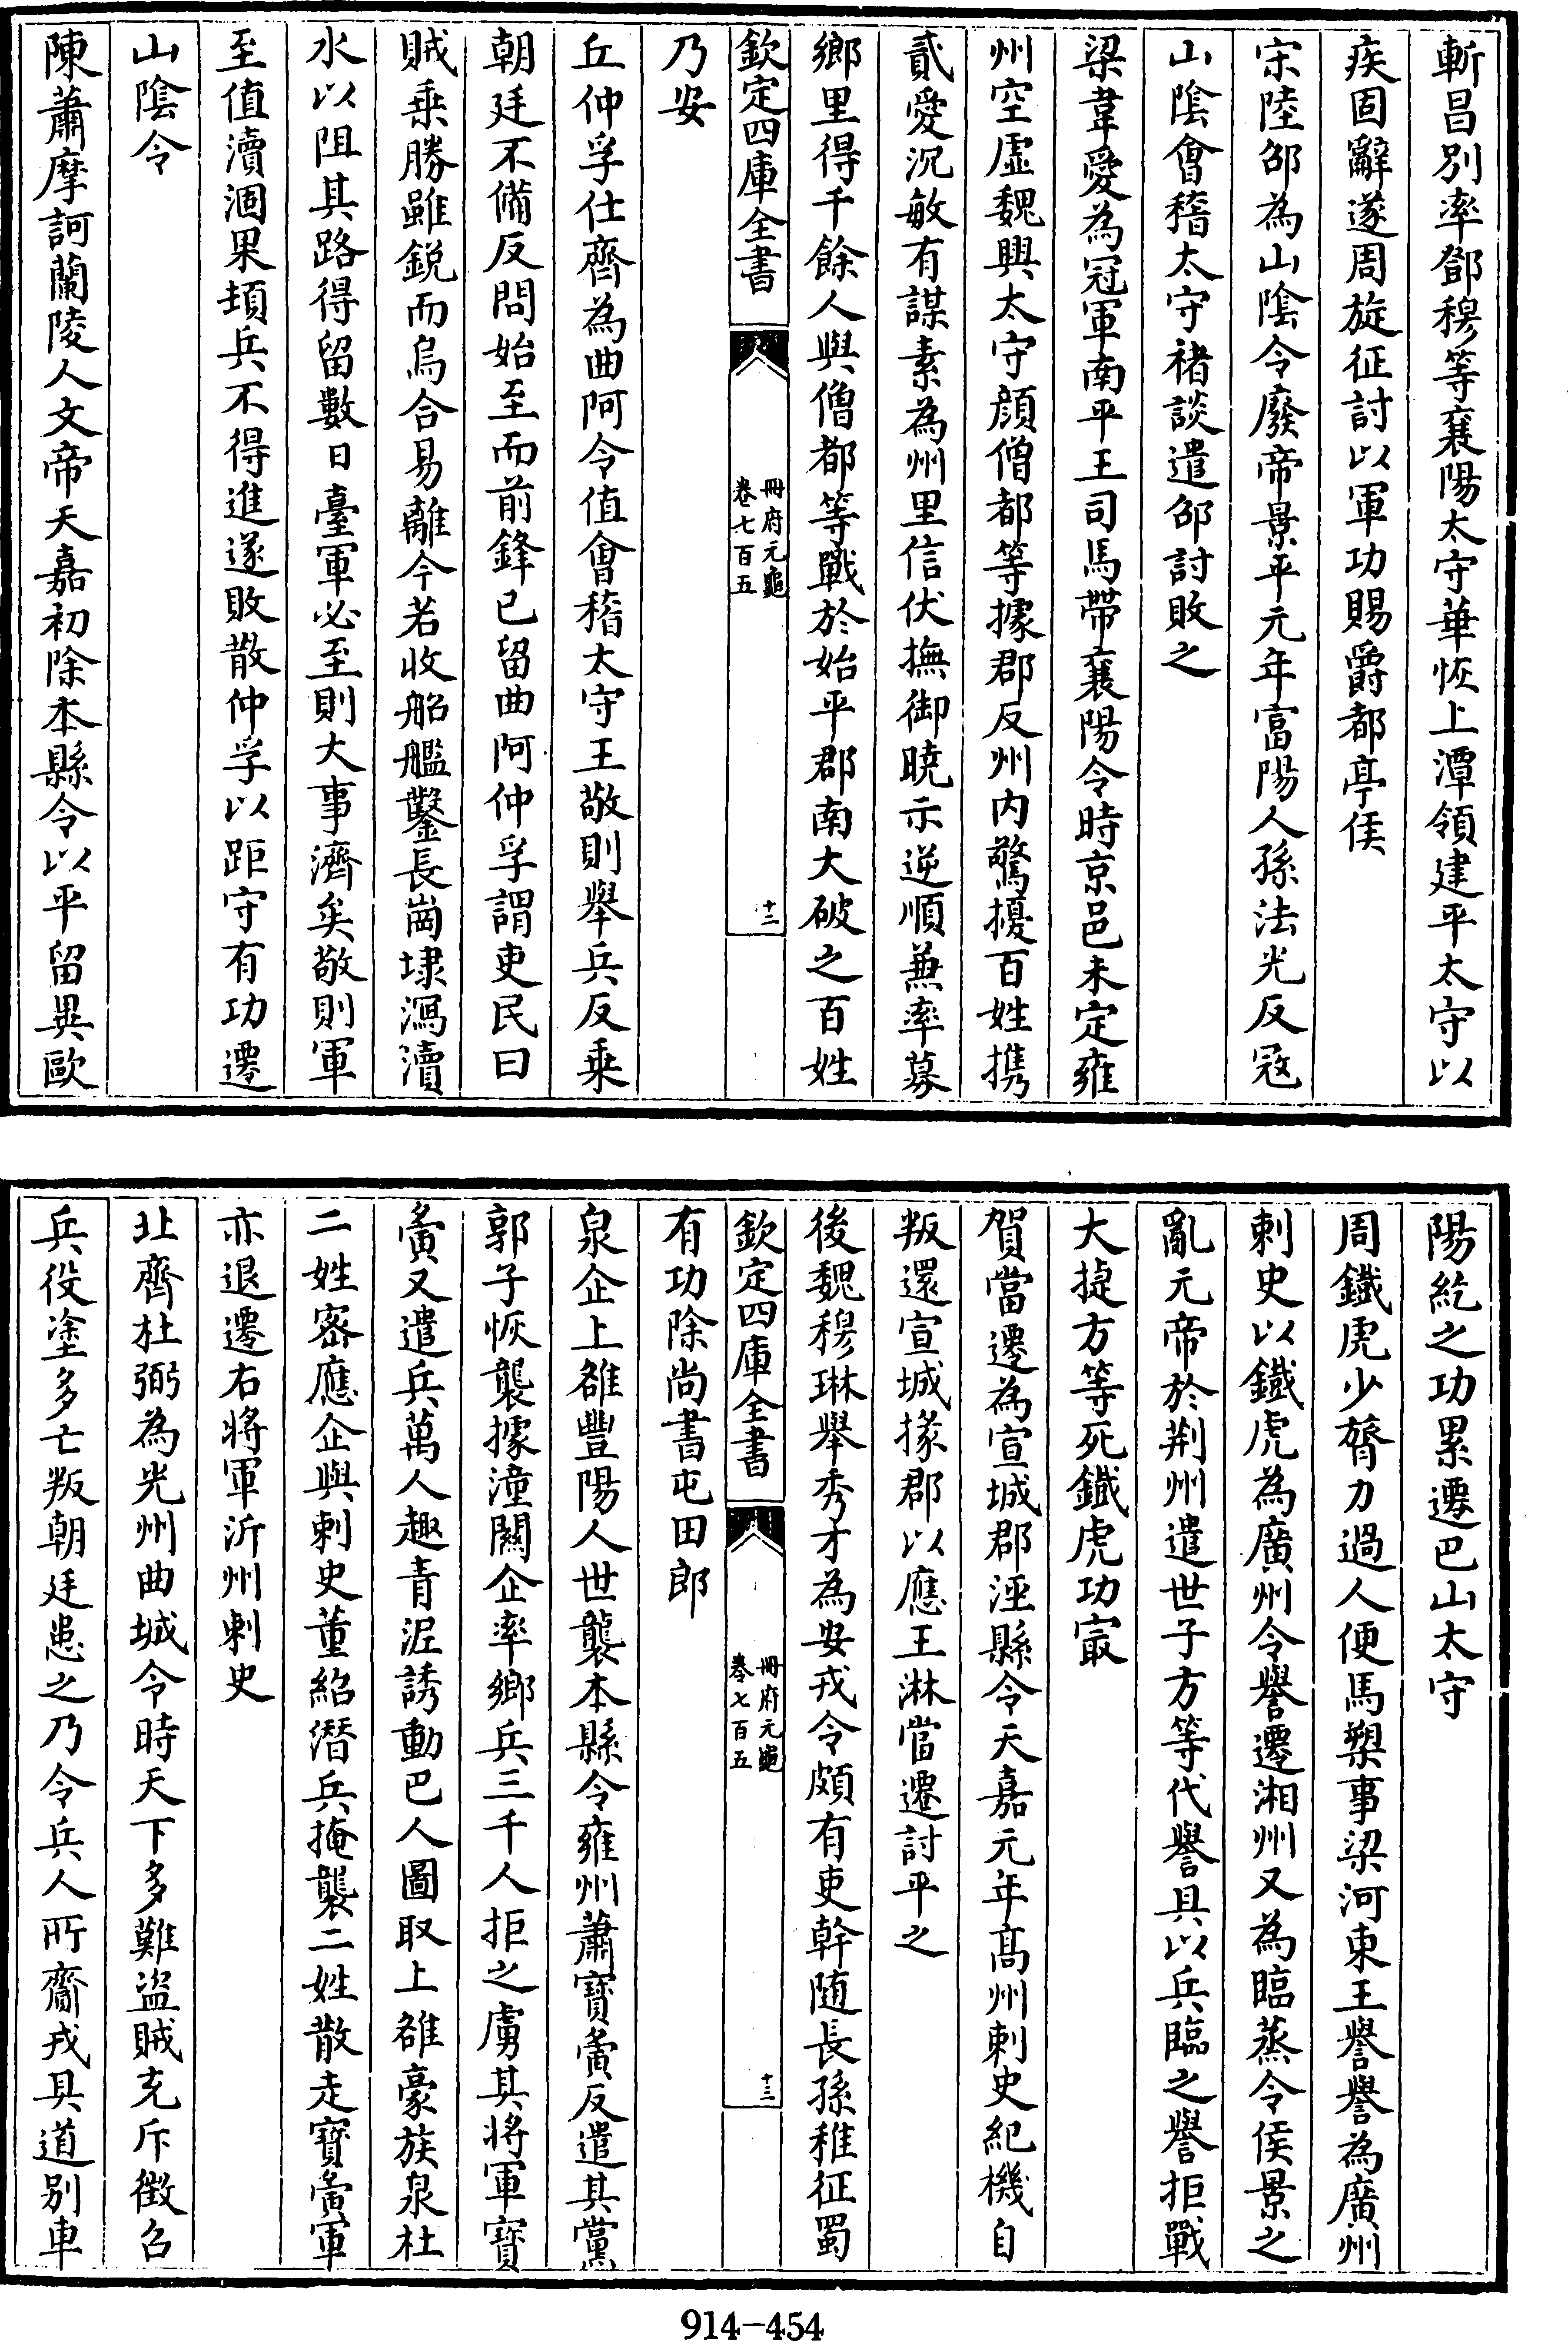 斬昌別率鄧穆等襄陽太守華恢上潭領建平太守以
疾固辭遂周旋征討以軍功賜爵都亭侯
宋陸邵為山陰令廢帝景平元年富陽人孫法光反冦
山陰會稽太守禇談遣邵討敗之
梁韋愛為冠軍南平王司馬帶襄陽令時京邑未定雍
州空虚魏興太守顔僧都等據郡反州内驚擾百姓携
貳愛沉敏有謀素為州里信伏撫御曉示逆順兼率募
鄉里得千餘人與僧都等戰於始平郡南大破之百姓
欽定四庫全書
冊府元龜
卷七百五
十二
乃安
丘仲孚仕齊為曲阿令值會稽太守王敬則舉兵反乗
朝廷不備反問始至而前鋒已留曲阿仲孚謂吏民曰
賊乗勝雖鋭而烏合易離今若收船艦鑿長崗埭瀉瀆
水以阻其路得留數日臺軍必至則大事濟矣敬則軍
至值瀆涸果頓兵不得進遂敗散仲孚以距守有功遷
山陰令
陳蕭摩訶蘭陵人文帝天嘉初除本縣令以平留異歐
陽紇之功累遷巴山太守
周鐵虎少膂力過人便馬槊事梁河東王譽譽為廣州
刺史以鐵虎為廣州令譽遷湘州又為臨蒸令侯景之
亂元帝於荆州遣世子方等代譽具以兵臨之譽拒戰
大㨗方等死鐵虎功㝡
賀當遷為宣城郡涇縣令天嘉元年髙州刺史紀機自
叛還宣城據郡以應王淋當遷討平之
後魏穆琳舉秀才為安戎令頗有吏幹随長孫稚征蜀
欽定四庫全書
冊府元龜
卷七百五
十三
有功除尚書屯田郎
泉企上雒豐陽人世襲本縣令雍州蕭寳夤反遣其黨
郭子恢襲據潼關企率鄉兵三千人拒之虜其將軍寳
夤又遣兵萬人趣青泥誘動巴人圖取上雒豪族泉杜
二姓密應企與刺史董紹潛兵掩襲二姓散走寳夤軍
亦退遷右將軍沂州刺史
北齊杜弼為光州曲城令時天下多難盜賊充斥徵召
兵役塗多亡叛朝廷患之乃令兵人所齎戎具道別車
914-454